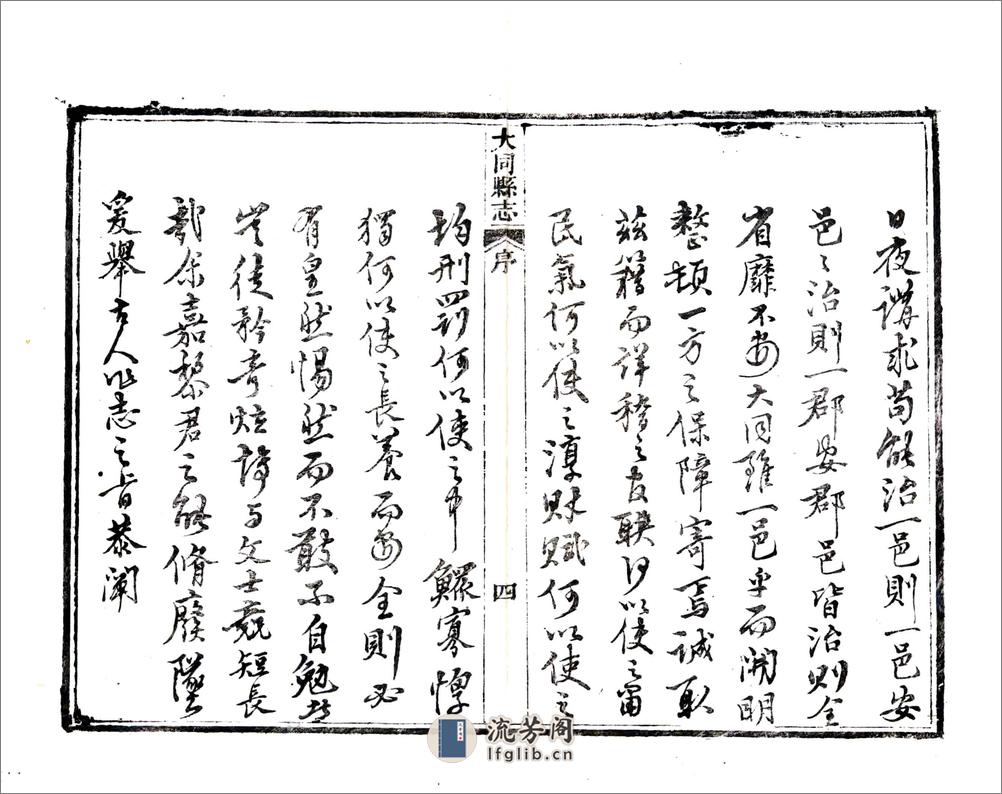 日夜講求苟能治一邑則一邑安
邑々治則一郡安郡邑皆治則全
省靡不安大同雖一邑乎而開明
整頓一方之保障寄焉誠取
茲籍而詳稽之官聯何以使之甯
民氣何以使之淳財賦何以使之
大同縣志
序
四
均刑罰何以使之中鰥寡惸
獨何以使之長養而安全則必
有皇然惕然而不敢不自勉者
豈徒矜奇炫博与文士競短長
哉余嘉黎君之能脩廢墜
爰舉古人作志之旨恭闡
流芳阁
lfglib.cn